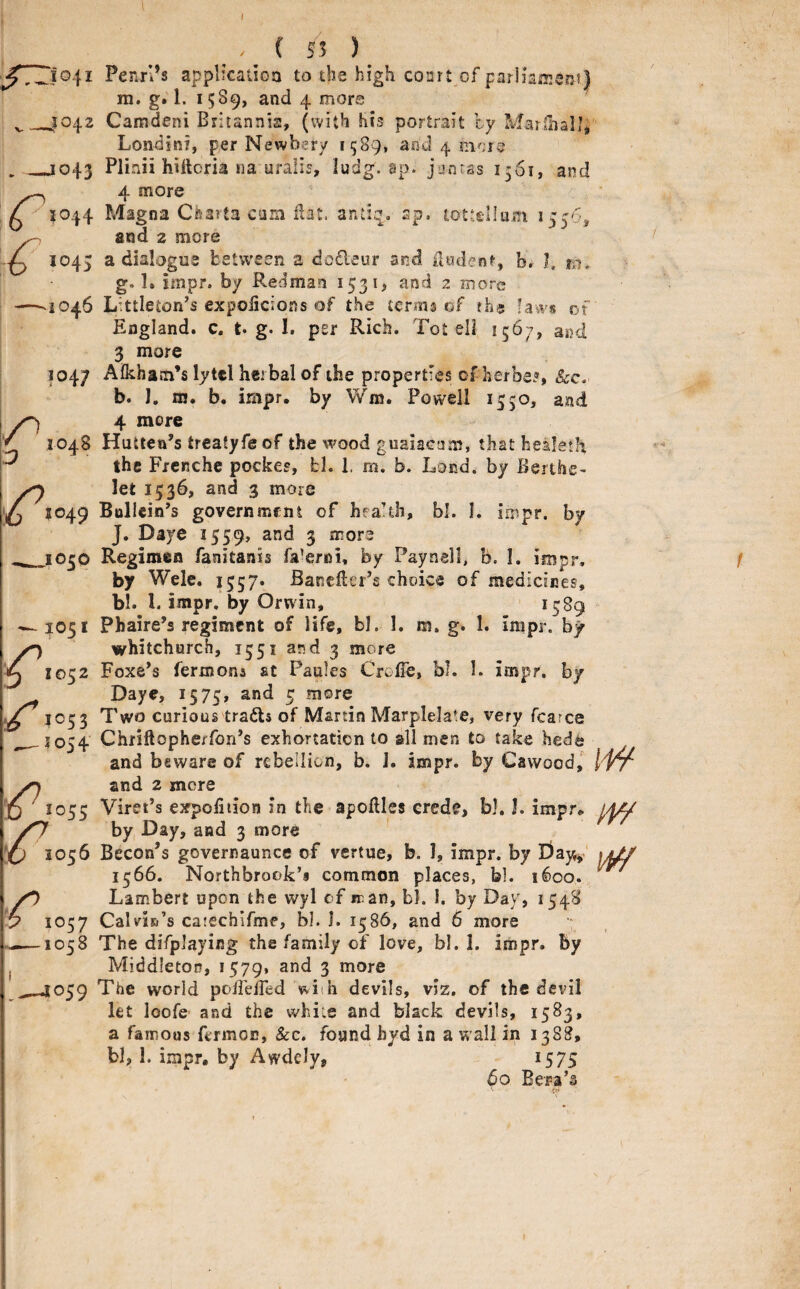 ( 53 )
1041 Penri's application to the high court of parliament)
m. g. l. 1589, and 4 more
1042 Camdeni Britannia, (with his portrait by Marſhall,
Londini, per Newbery 1589, and 4 more
1043 Plinii hiſtoria na uralis, ludg. ap. juntas 1561, and
4 more
1044 Magna Charta cum ſtat. antiq. ap. tottellum 1556,
and 2 more
1045 a dialogue between a doćteur and ſtudent, b. l. m.
g. l. impr. by Redman 1531, and 2 more
1046 Littleton's expoſicions of the terms of the laws of
England. c. t. g. l. per Rich. Tot ell 1567, and
3 more
1047 Aſkham's lytel herbal of the properties of herbes, &c.
b. l. m. b. impr. by Wm. Powell 1550, and
4 more
1048 Hutten's treatyſe of the wood guaiacum, that healeth
the Frenche pockes, bl. l. m. b. Lond. by Berthe-
let 1536, and 3 more
1049 Bullein's government of health, bl. l. impr. by
J. Daye 1559, and 3 more
1050 Regimen ſanitanis ſalerni, by Paynell, b. l. impr.
by Wele. 1557. Baneſter's choice of medicines,
bl. l. impr. by Orwin, 1589
1051 Phaire's regiment of life, bl. l. m. g. l. impr. by
whitchurch, 1551 and 3 more
1052 Foxe's ſermons at Paules Croſſe, bl. l. impr. by
Daye, 1575, and 5 more
1053 Two curious traćts of Martin Marplelate, very ſcarce
1054 Chriſtopherſon's exhortation to all men to take hede
and beware of rebellion, b. l. impr. by Cawood,
and 2 more
1055 Viret's expoſition in the apoſtles crede, bl. l. impr.
by Day, and 3 more
1056 Becon's governaunce of vertue, b. l, impr. by Day,
1566. Northbrook's common places, bl. 1600.
Lambert upon the wyl of man, bl. l. by Day, 1548
1057 Calvin's catechiſme, bl. l. 1586, and 6 more
1058 The diſplaying the family of love, bl. l. impr. by
Middleton, 1579, and 3 more
1059 The world poſſeſſed wi h devils, viz. of the devil
let looſe and the white and black devils, 1583,
a famous ſermon, &c. found hyd in a wall in 1388,
bl, l. impr. by Awdely, 1575
60 Beza's